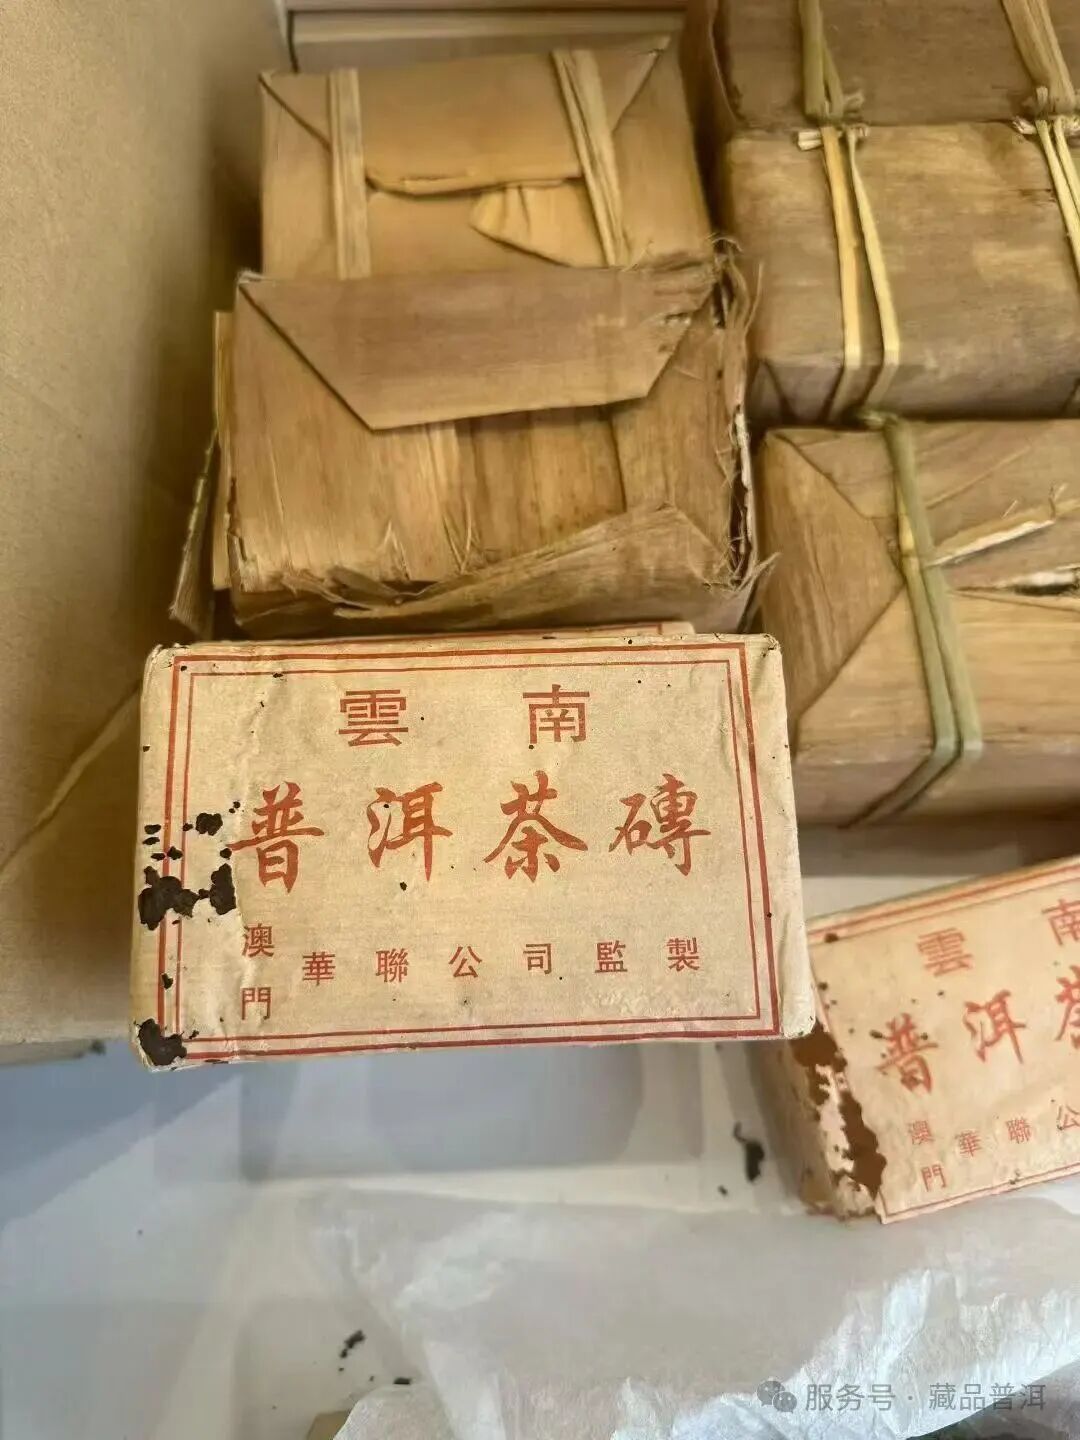 雲南
普洱茶磚
澳門華聯公司監製
雲南
普洱茶
澳門華聯公
服务号·藏品普洱